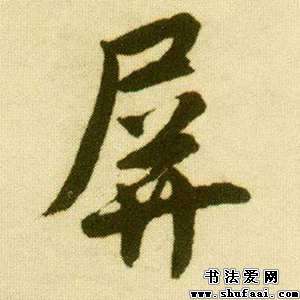 屏
书法爱网
www.shufaai.com